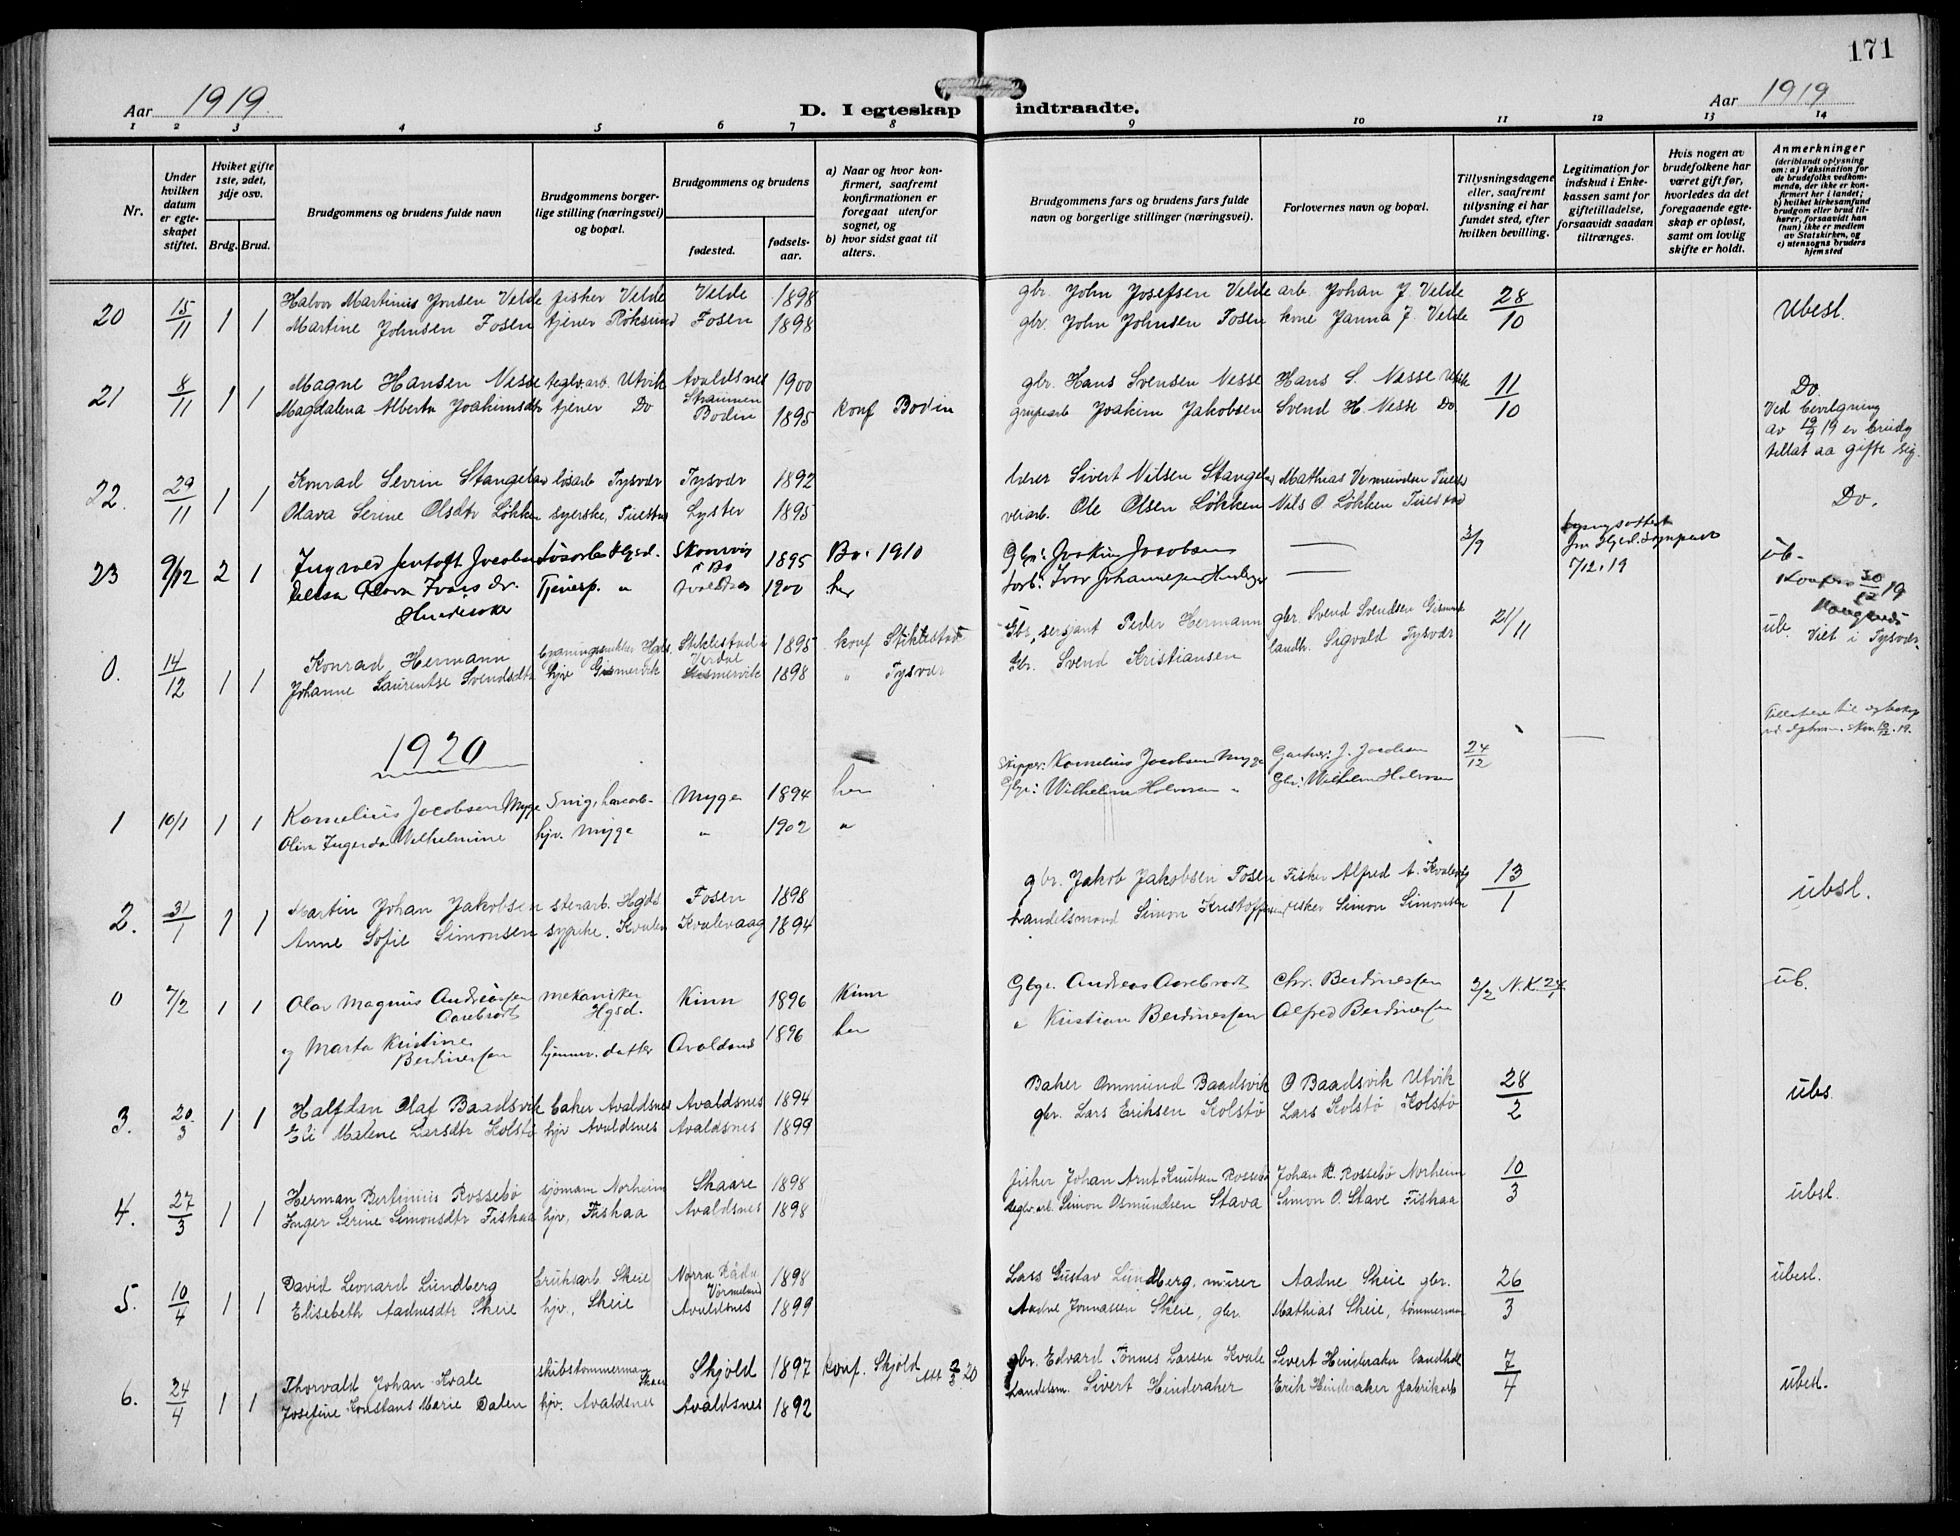 171
Aar 1919. D. I egteskap indtraadte. Aar 1919
1 2 3 4 5 6 7 8 9 10 11 12 13 14
Nr.
Under hvilken datum er egteskapet stiftet.
Hvilket gifte 1ste, 2det, 3dje osv.
Brdg. Brud.
Brudgommens og brudens fulde navn
Brudgommens borgerlige stilling (næringsvei) og bopæl.
Brudgommens og brudens
fødested. fødselsaar.
a) Naar og hvor konfirmert, saafremt konfirmationen er foregaat utenfor sognet, og
b) hvor sidst gaat til alters.
Brudgommens fars og brudens fars fulde navn og borgerlige stillinger (næringsvei).
Forlovernes navn og bopæl.
Tillysningsdagene eller, saafremt tillysning ei har fundet sted, efter hvilken bevilling.
Legitimation for indskud i Enkekassen samt for giftetilladelse, forsaavidt saadan tiltrænges.
Hvis nogen av brudefolkene har været gift før, hvorledes da det foregaaende egteskap er opløst, samt om lovlig skifte er holdt.
Anmerkninger
(deriblandt oplysning om: a) Vaksination for de brudefolks vedkommende, der ikke er konfirmert her i landet; b) hvilket kirkesamfund brudgom eller brud tilhører, forsaavidt han (hun) ikke er medlem av Statskirken, og c) utensogns bruders hjemsted
20 15/11 1 1 Halvor Martinus Jonsen Velde fisker Velde Velde 1898 gbr. John Josefsen Velde arb. Johan J. Velde 28/10 Ubesl.
Martine Johnsen Fosen tjener Røksund Fosen 1898 gbr. John Johnsen Fosen kone Janna J. Velde
21 8/11 1 1 Magne Hansen Nesse teglv.arb. Utvik Avaldsnes 1900 gbr. Hans Svensen Nesse Hans S. Nesse Utvik 11/10 Do.
Magdalena Alberta Joakimsdtr tjener Do Straumen Bodin 1895 konf Bodin grubearb Joakim Jakobsen Svend H. Nesse Do.
Ved bevilgning av 19/9 19 er brudg tillat aa gifte sig.
22. 29/11 1 1 Konrad Sevrin Stangeland løsarb Tysvær Tysvær 1892 lærer Sivert Nilsen Stangeland Mathias Vermundsen
Olava Serine Olsdtr Løkken syerske, Lyster 1895 verarb. Ole Olsen Løkken Nils O Løkken Do.
23 9/12 2 1 Ingvald Jentoft Jacobsen Løsarb. Hgsd. 1895 Bø. 1910 Gbr: Joakim Jacobsen — 3/9 7/12.19 ub.
Olava Ivars dr. Tjenesp. " Avaldsnes 1900 her Ivar Johannessen —
30/12 19
0. 14/12 1 1 Konrad Hermann Hgds. Stiklestad i Verdal 1895 konf Stiklestad Gbr, sersjant Peder Hermann gbr. Svend Svendsen 21/11 ub. Viet i Tysvær.
Johanne Laurentse Svendsdtr hjv Gismervik Gismervik 1898 " Tysvær Gbr. Svend Kristiansen landh. Sigvald Tysvær
1920
1 10/1 1 1 Kornelius Jocobsen Myge Myge 1894 her Skipper: Kornelius Jocobsen Myge Gartner: J. Jocobsen 24/12 —
Oliva Ingerda Wilhelmine hjv. Myge " 1902 " Gbr: Wilhelm " Gbr: Wilhelm
2. 31/1 1 1 Martin Johan Jakobsen stenarb. Hgds Fosen 1898 gbr. Jakob Jakobsen Fosen Fisker Alfred A. Kvalevåg 13/1 ubsl.
Anne Sofie Simonsen syerske. Kvalev Kvalevaag 1894 handelsmand Simon Kristoffersen fisker Simon Simonsen
0 7/2 1 1 Olav Magnus Andreassen Aarebrodt mekaniker Hgsd. Kinn 1896 Kinn Gbr. Andreas Aarebrodt Chr. Berdinessen 2/2 N.K. 24/1 ub.
og Marta Kristine Berdinessen hjemmev. datter Avaldsnes 1896 her " Kristian Berdinessen Alfred Berdinessen
3. 20/3 1 1 Halfdan Olaf Baadsvik baker Avaldsnes Avaldsnes 1894 Baker Ommund Baadsvik O Baadsvik Utvik 28/2 ubs.
Eli Malene Larsdtr Kolstø hjv Avaldsnes Avaldsnes 1899 gbr. Lars Eriksen Kolstø Lars Kolstø Kolstø
4. 27/3 1 1 Herman Bertinius Rossebø sjømann Norheim Skaare 1898 fisker Johan Arnt Knutsen Rossebø Johan K. Rossebø Norheim 10/3 ubsl.
Inger Serine Simonsdtr Fiskaa hjv, Fiskaa Avaldsnes 1898 teglv.arb. Simon Osmundsen Stava Simon O. Stave Fiskaa
5. 10/4 1 1 David Leonard Lundberg bruksarb. Skeie Norra Råda Vermeland 1898 Lars Gustav Lundberg, murer Aadne Skeie gbr. 26/3 ubesl.
Elisabeth Aadnesdtr Skeie hjv, Skeie Avaldsnes 1899 Aadne Jonnassen Skeie, gbr. Mathias Skeie, tømmermann
6. 24/4 1 1 Thorvald Johan Kvale skibstømmermann Skaare Skjold 1897 konf. Skjold att 2/3 20 gbr. Edvard Tønnes Larsen Kvale Sivert Hinderaker landh. 7/4 ubesl.
Josefine Konstans Marie Dalen hjv. Avaldsnes Avaldsnes 1892 Landelsm. Sivert Hinderaker Erik Hinderaker fabrikarb